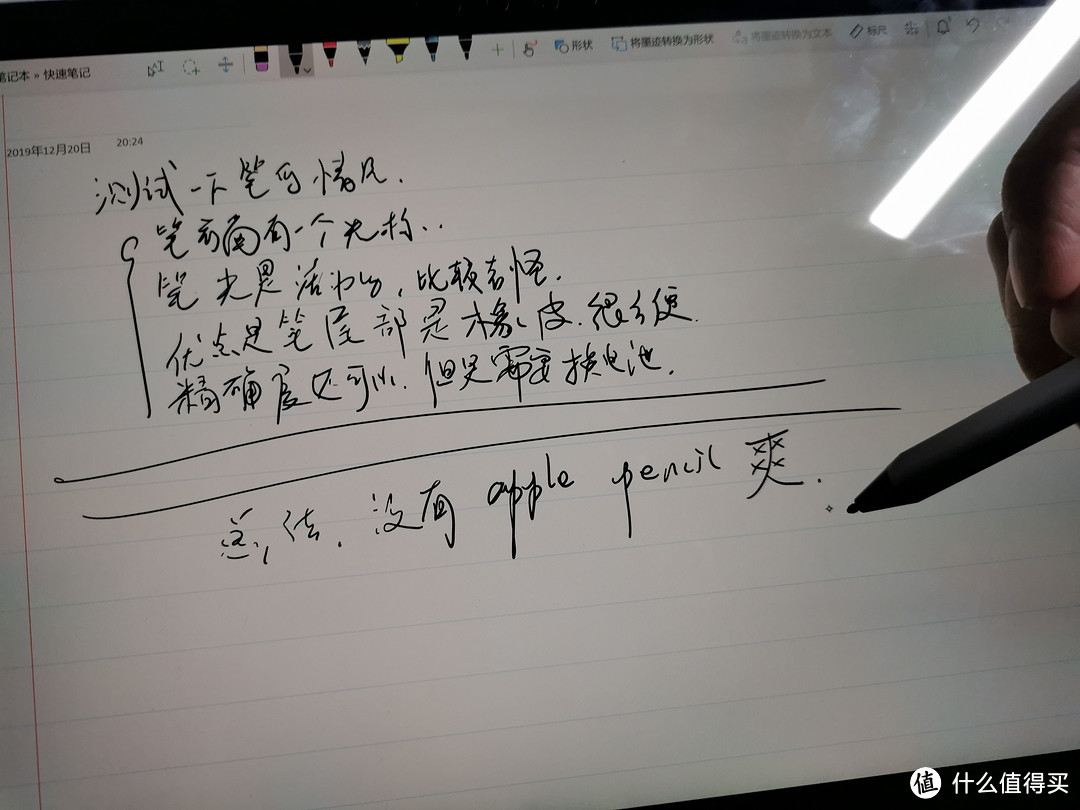 笔记本 » 快速笔记
形状 将墨迹转换为形状 将墨迹转换为文本 标尺
2019年12月20日 20:24
测试一下笔的情况.
笔前面有一个光标..
笔尖是活动的,比较奇怪.
优点是笔尾部是橡皮.很方便.
精确度还可以.但是需要换电池.
总结.没有apple pencil爽.
值 什么值得买